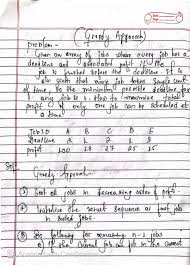 (Greedy Approach)
Problem -
Given an array of jobs where every job has a
deadline and associated profit if the
job is finished before the deadline. It is
also given that every job takes single unit
of time, so the minimum possible deadline for
any job is 1. How to maximize total
profit if only one job can be scheduled at
a time?
JobID A B C D E
Deadline 2 1 2 1 3
profit 100 19 27 25 15
Greedy Approach
① Sort all jobs in decreasing order of profit
② Initialize the result sequence as first job
in sorted jobs.
③ Do following for remaining n-1 jobs
a) If the current job